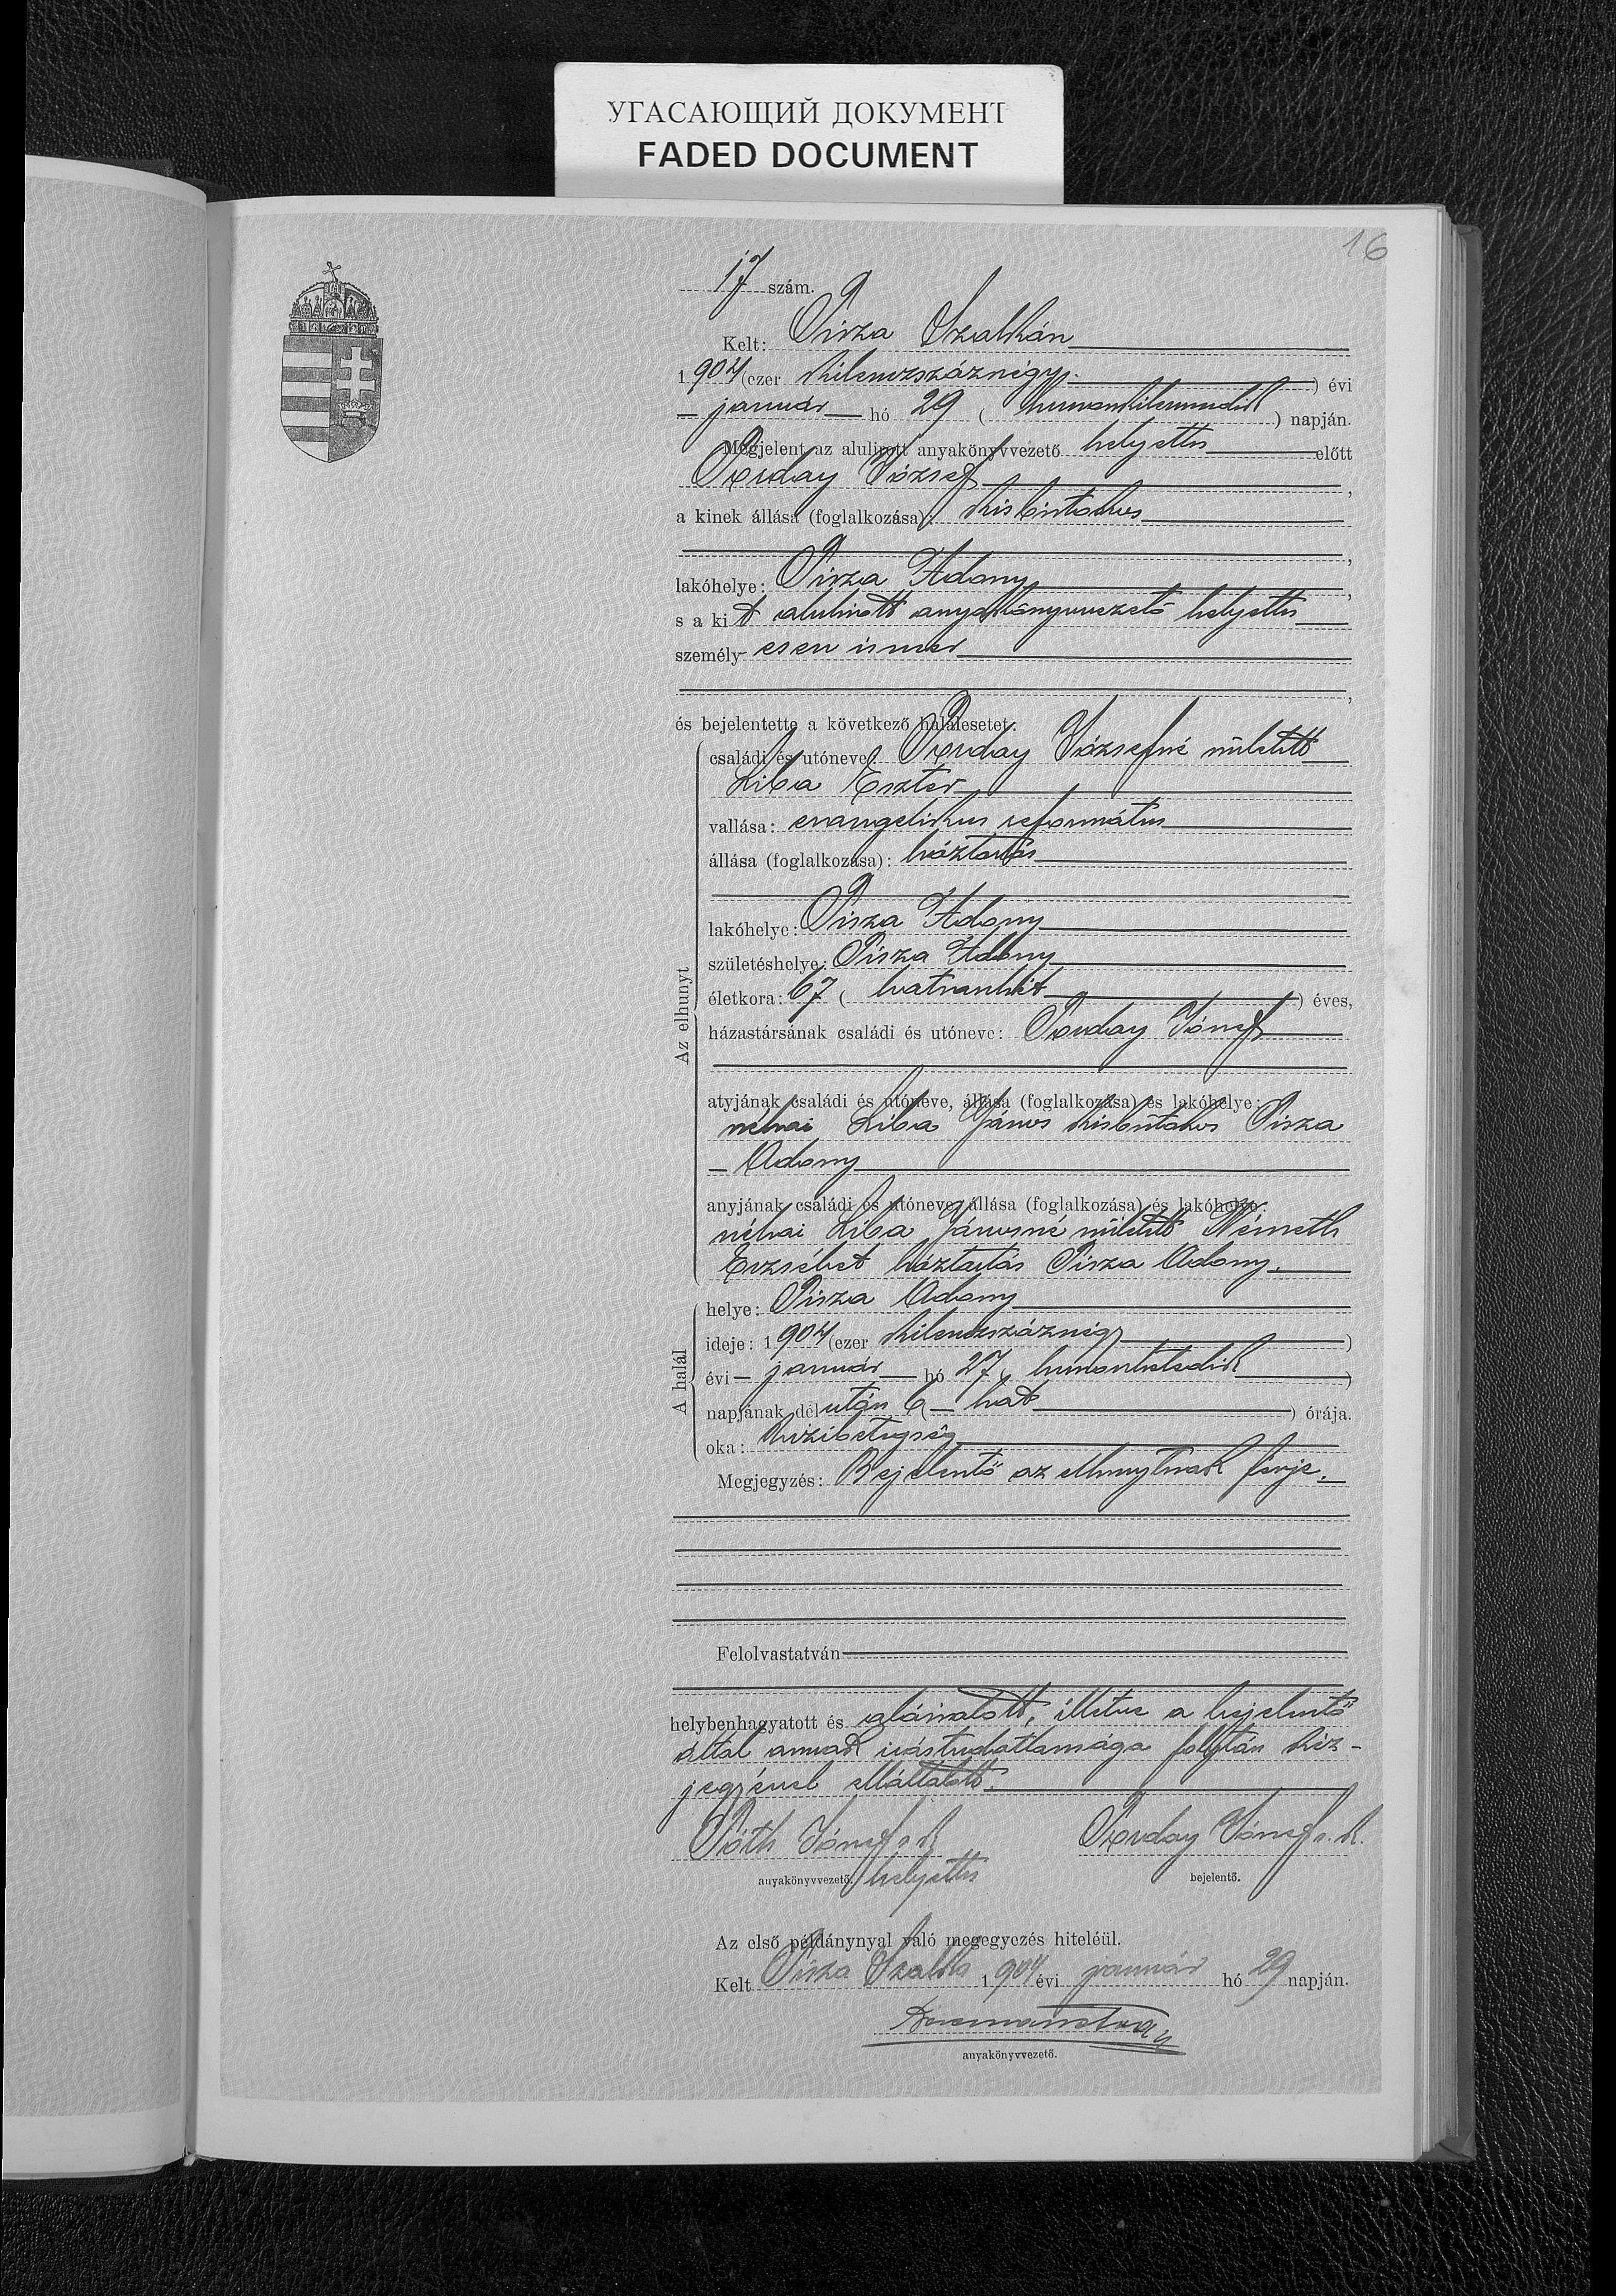 УГАСАЮЩИЙ ДОКУМЕНТ
FADED DOCUMENT
16
17 szám.
Kelt: Tisza Szalkán
1904 (ezer kilenczszáznégy) évi
január hó 29 (huszonkilenczedik) napján.
Megjelent az alulirott anyakönyvvezető helyettes előtt
Torday József,
a kinek állása (foglalkozása): kisbirtokos
,
lakóhelye: Tisza Adony,
s a kit alulirott anyakönyvvezető helyettes
személyesen ismer
,
és bejelentette a következő halálesetet:
Az elhunyt
családi és utóneve: Torday Józsefné született
Liba Eszter
vallása: evangelikus református
állása (foglalkozása): háztartás
lakóhelye: Tisza Adony
születéshelye: Tisza Adony
életkora: 67 (hatvanhét) éves,
házastársának családi és utóneve: Torday József
atyjának családi és utóneve, állása (foglalkozása) és lakóhelye:
néhai Liba János kisbirtokos Tisza
Adony
anyjának családi és utóneve, állása (foglalkozása) és lakóhelye:
néhai Liba Jánosné született Németh
Erzsébet háztartás Tisza Adony.
A halál
helye: Tisza Adony
ideje: 1904 (ezer kilenczszáznégy)
évi január hó 27 (huszonhetedik)
napjának délután 6 (hat) órája.
oka: vizibetegség
Megjegyzés: Bejelentő az elhunytnak férje.
Felolvastatván
helybenhagyatott és aláiratott, illetve a bejelentő
által annak irástudatlansága folytán kéz-
jegyével elláttatott.
Tóth József s. k. Torday József s. k.
anyakönyvvezető. helyettes bejelentő.
Az első példánynyal való megegyezés hiteléül.
Kelt Tisza Szalka 1904 évi január hó 29 napján.
anyakönyvvezető.